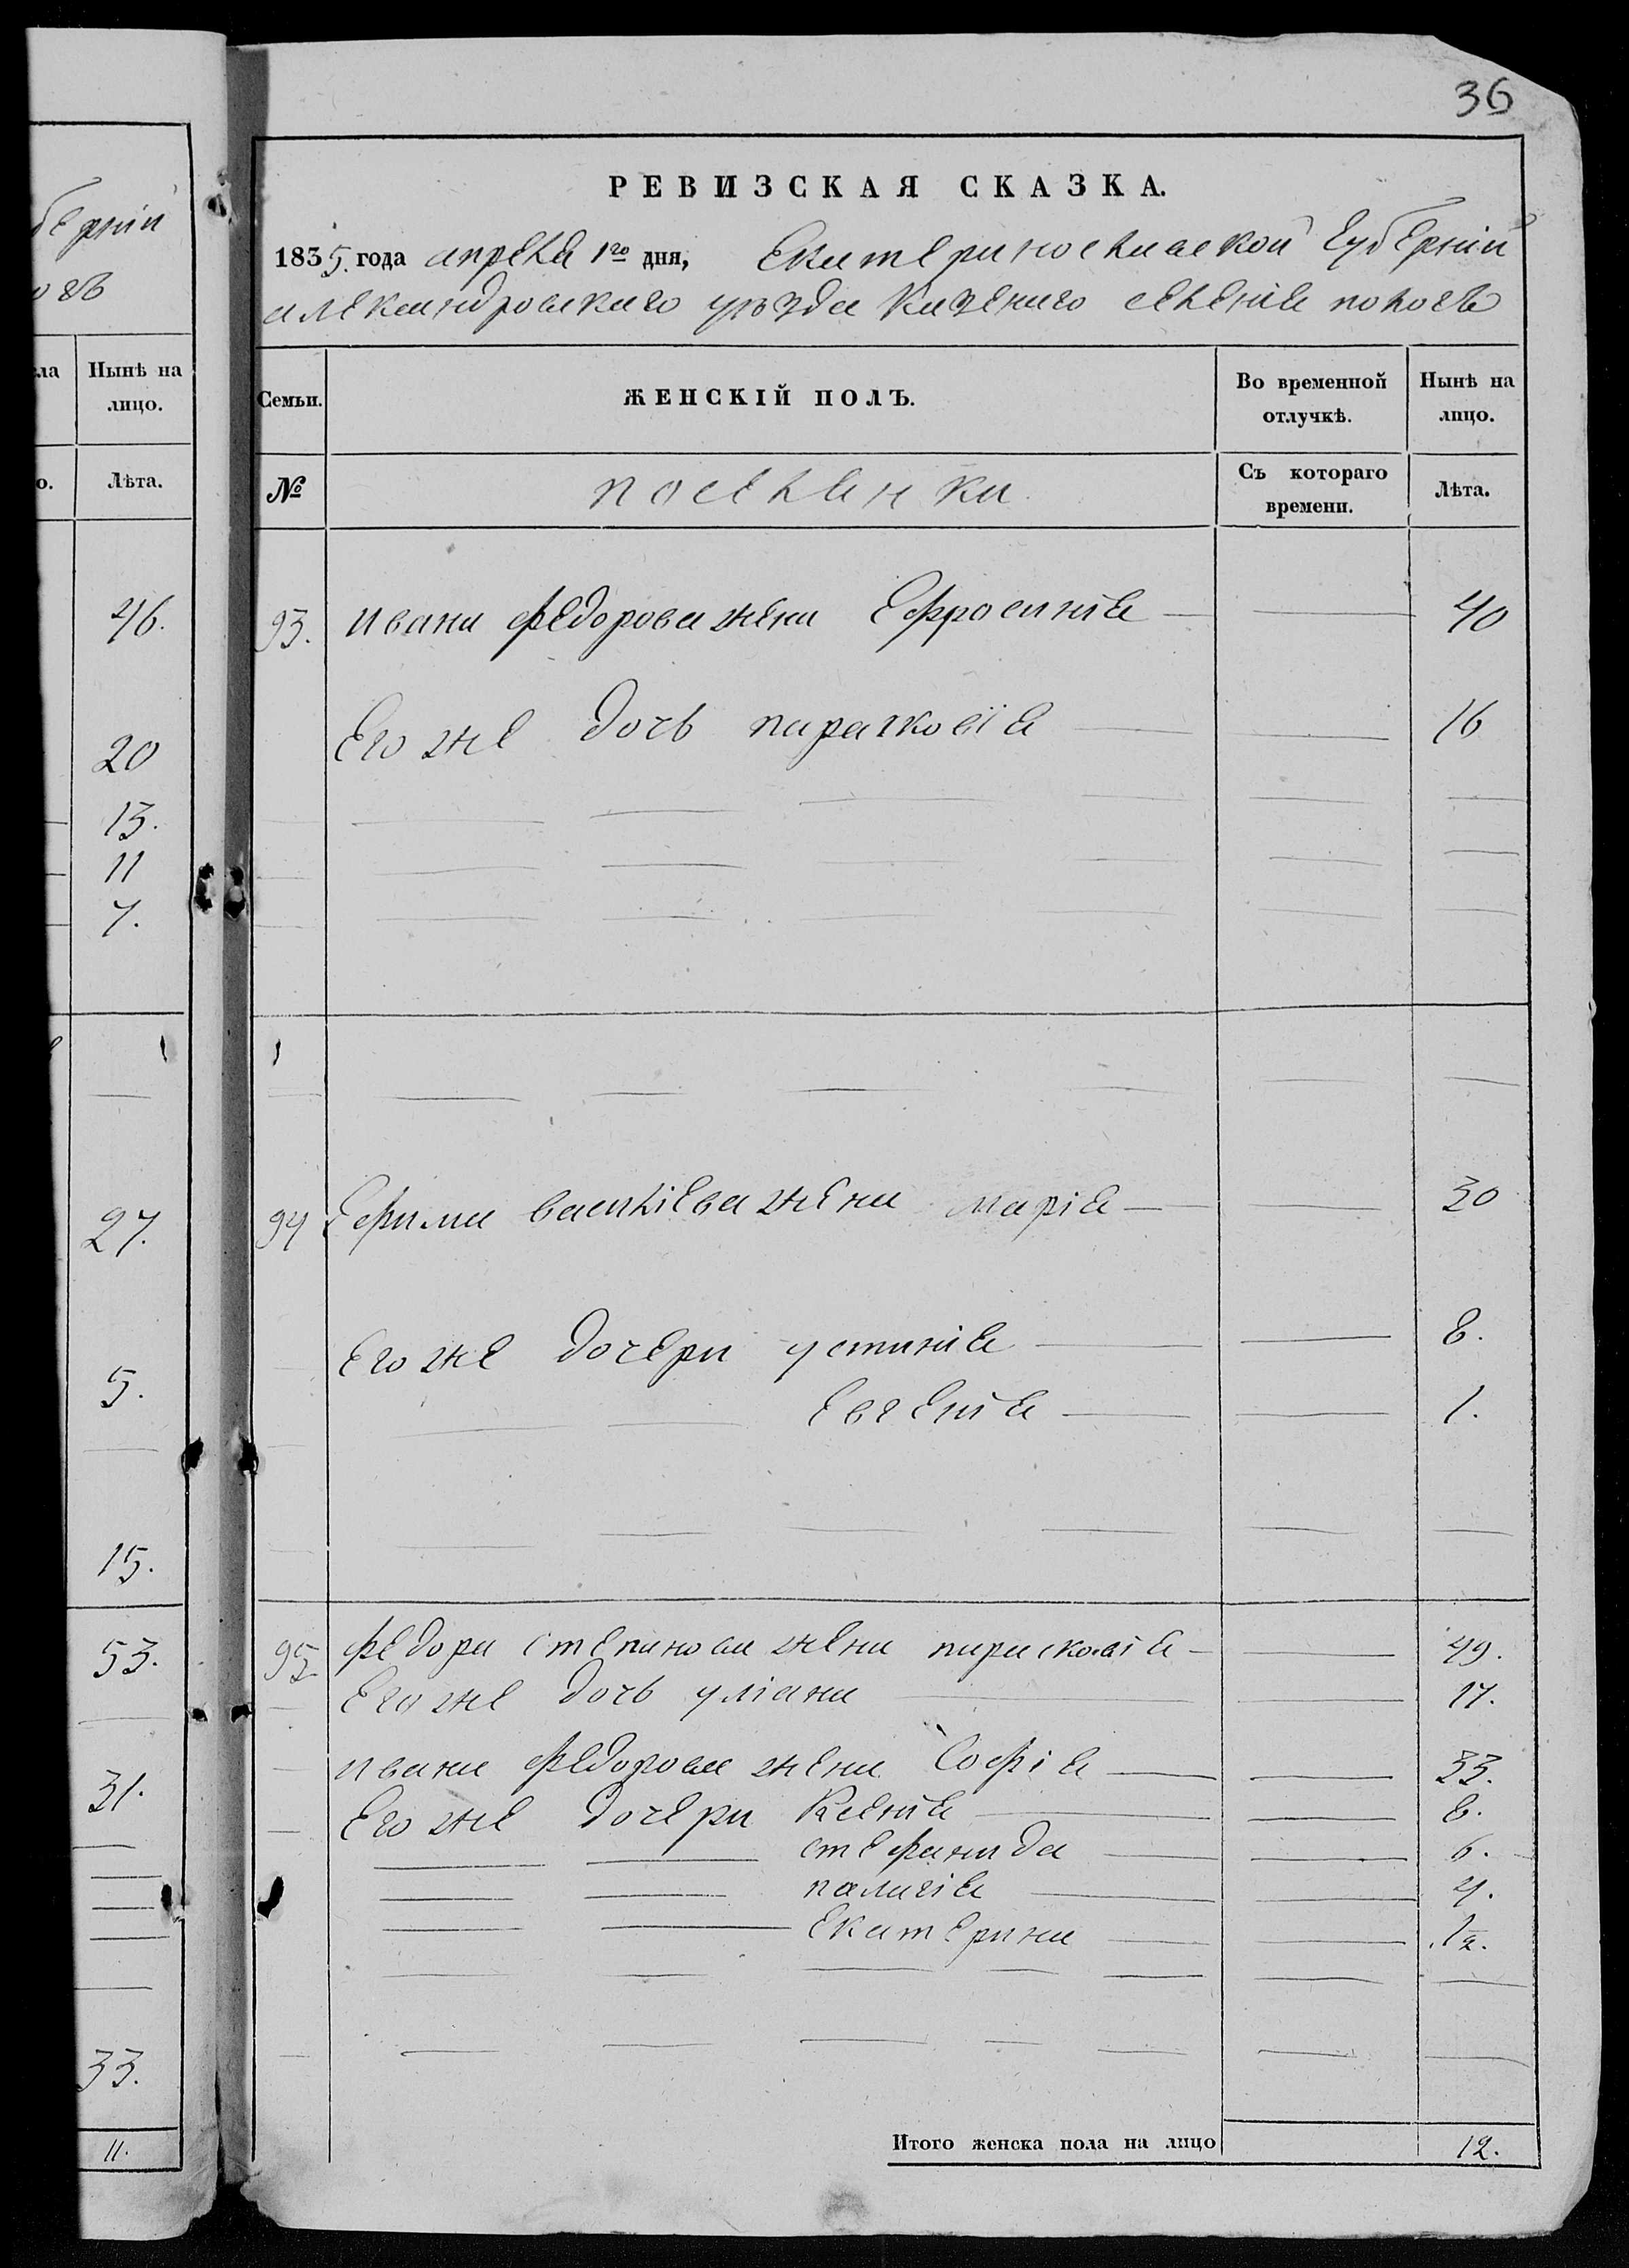 36
РЕВИЗСКАЯ СКАЗКА.
1835. года апреля 1го дня, Екатеринославской Губернiи
александровскаго уѣзда казеннаго селенiя пологъ
Семьи. ЖЕНСКIЙ ПОЛЪ. Во временной отлучкѣ. Нынѣ на лицо.
№ поселянки Съ котораго времени. Лѣта.
93. ивана федорова жена Ефросинiя — — 40
Его же дочь парасковiя — — 16
94 Ефима василiева жена марiя — — 30
Его же дочери устинiя — — 8.
Евгенiя — — 1.
95 федора степанова жена парасковiя — — 49.
Его же дочь улiана — — 17.
ивана федорова жена Софiя — — 33.
Его же дочери Ксенiя — — 8.
стефанида — — 6.
палагiя — — 4.
Екатерина — — 1/2.
Итого женска пола на лицо 12.
бернiи
огъ
ла Нынѣ на лицо.
о. Лѣта.
46.
20
13.
11
7.
27.
5.
15.
53.
31.
33.
11.